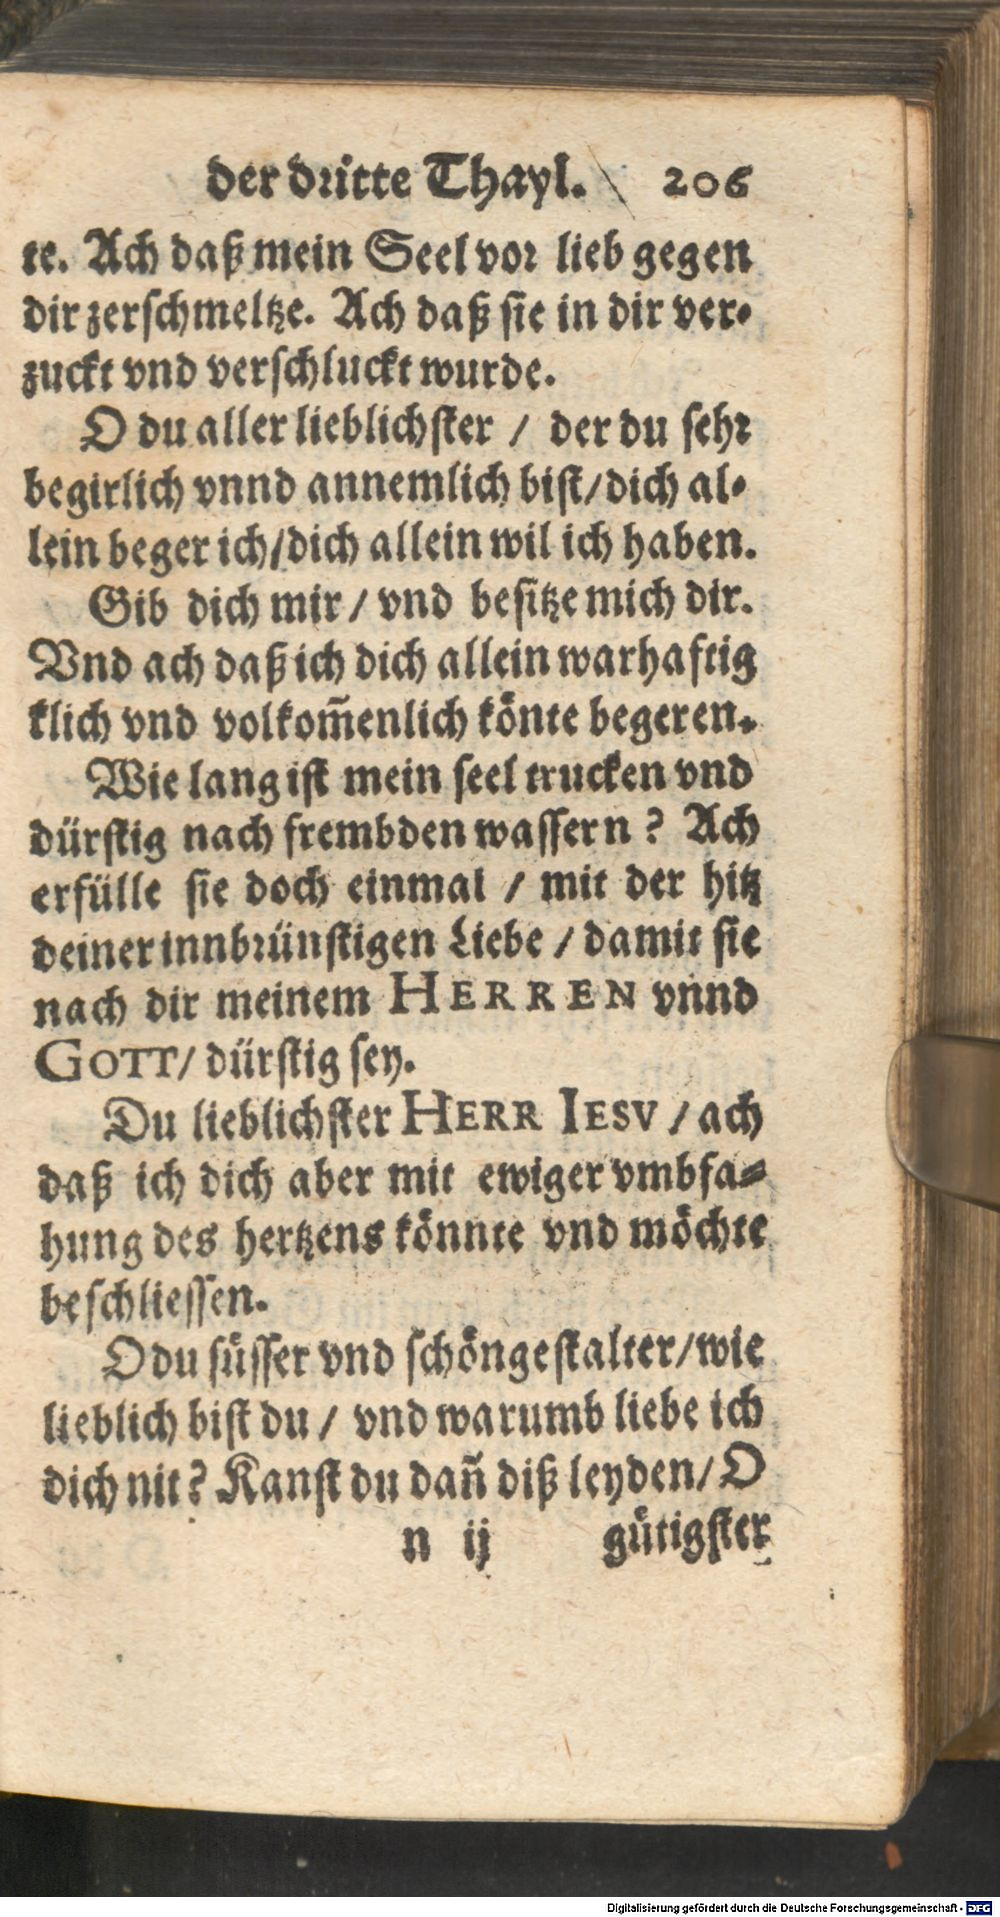 der dritte Thayl. 206
te. Ach daß mein Seel vor lieb gegen
dir zerschmeltze. Ach daß sie in dir ver-
zuckt vnd verschluckt wurde.
O du aller lieblichster / der du sehr
begirlich vnnd annemlich bist/dich al-
lein beger ich/dich allein wil ich haben.
Gib dich mir / vnd besitze mich dir.
Vnd ach daß ich dich allein warhaftig
klich vnd volkom̃enlich koͤnte begeren.
Wie lang ist mein seel trucken vnd
dürstig nach frembden wassern? Ach
erfülle sie doch einmal / mit der hitz
deiner innbrünstigen Liebe / damit sie
nach dir meinem HERREN vnnd
GOTT/ dürstig sey.
Du lieblichster HERR IESV / ach
daß ich dich aber mit ewiger vmbfa-
hung des hertzens koͤnnte vnd moͤchte
beschliessen.
O du süsser vnd schoͤngestalter/wie
lieblich bist du / vnd warumb liebe ich
dich nit? Kanst du dañ diß leyden/ O
n ij gütigster
Digitalisierung gefördert durch die Deutsche Forschungsgemeinschaft - DFG